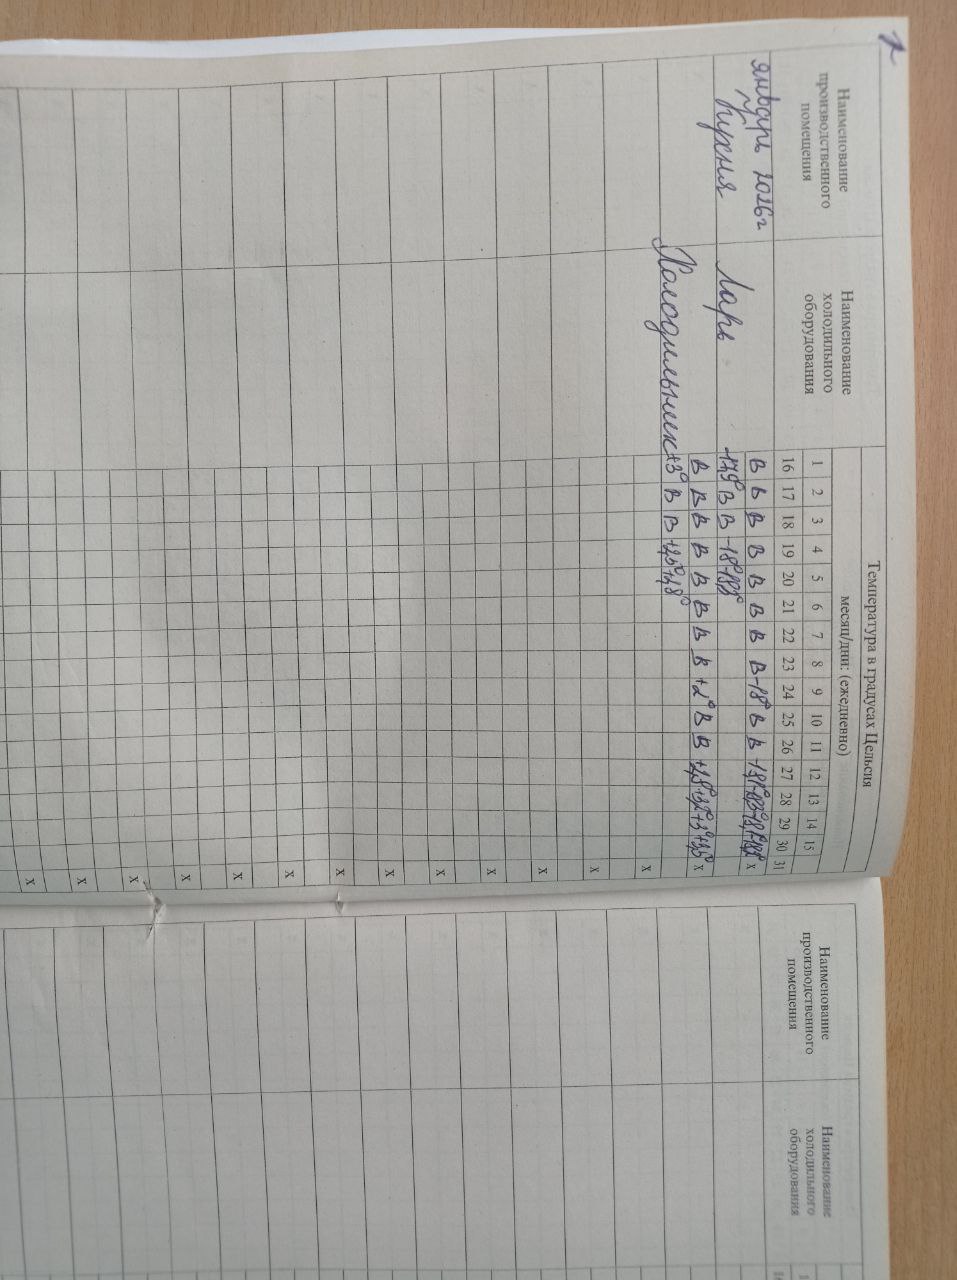 Наименование производственного помещения
Наименование холодильного оборудования
Температура в градусах Цельсия
месяц/дни: (ежедневно)
1 2 3 4 5 6 7 8 9 10 11 12 13 14 15
16 17 18 19 20 21 22 23 24 25 26 27 28 29 30 31
январь 2026г В В В В В В В В -18° В В х
Кухня Ларь -17,9° В В -18°
В В В В В В В В +2° В В +2,8° +3,2° +3° +3,5° х
Холодильник +3° В В +2,5° +2,8°
х
х
х
х
х
х
х
х
х
х
х
х
х
Наименование производственного помещения
Наименование холодильного оборудования